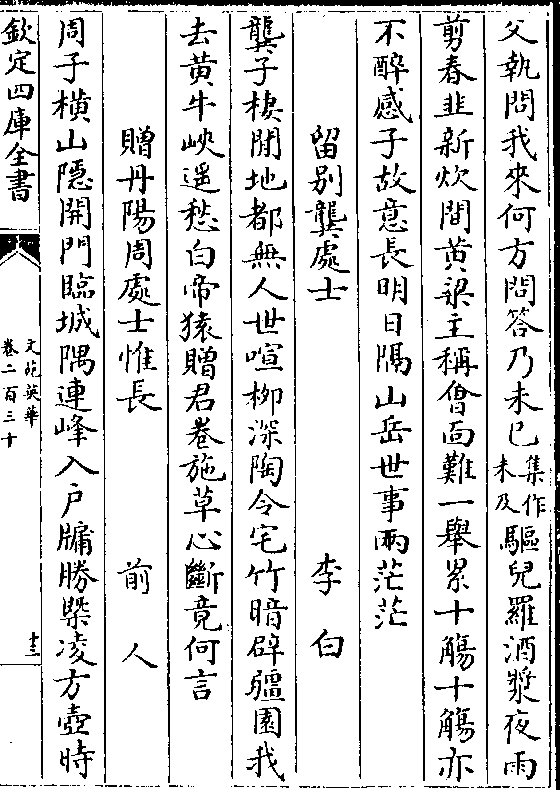 父執問我來何方問答乃未已集作未及驅兒羅酒漿夜雨
剪春韭新炊間黄粱主稱㑹面難一舉累十觴十觴亦
不醉感子故意長明日隔山岳世事兩茫茫
留别龔處士 李白
龔子棲閒地都無人世喧栁深陶令宅竹暗辟疆園我
去黄牛峽遥愁白帝猿贈君卷施草心斷竟何言
贈丹陽周處士惟長 前人
周子橫山隱開門臨城隅連峰入户牖勝槩凌方壺時
欽定四庫全書
文苑英華
卷二百三十
十三